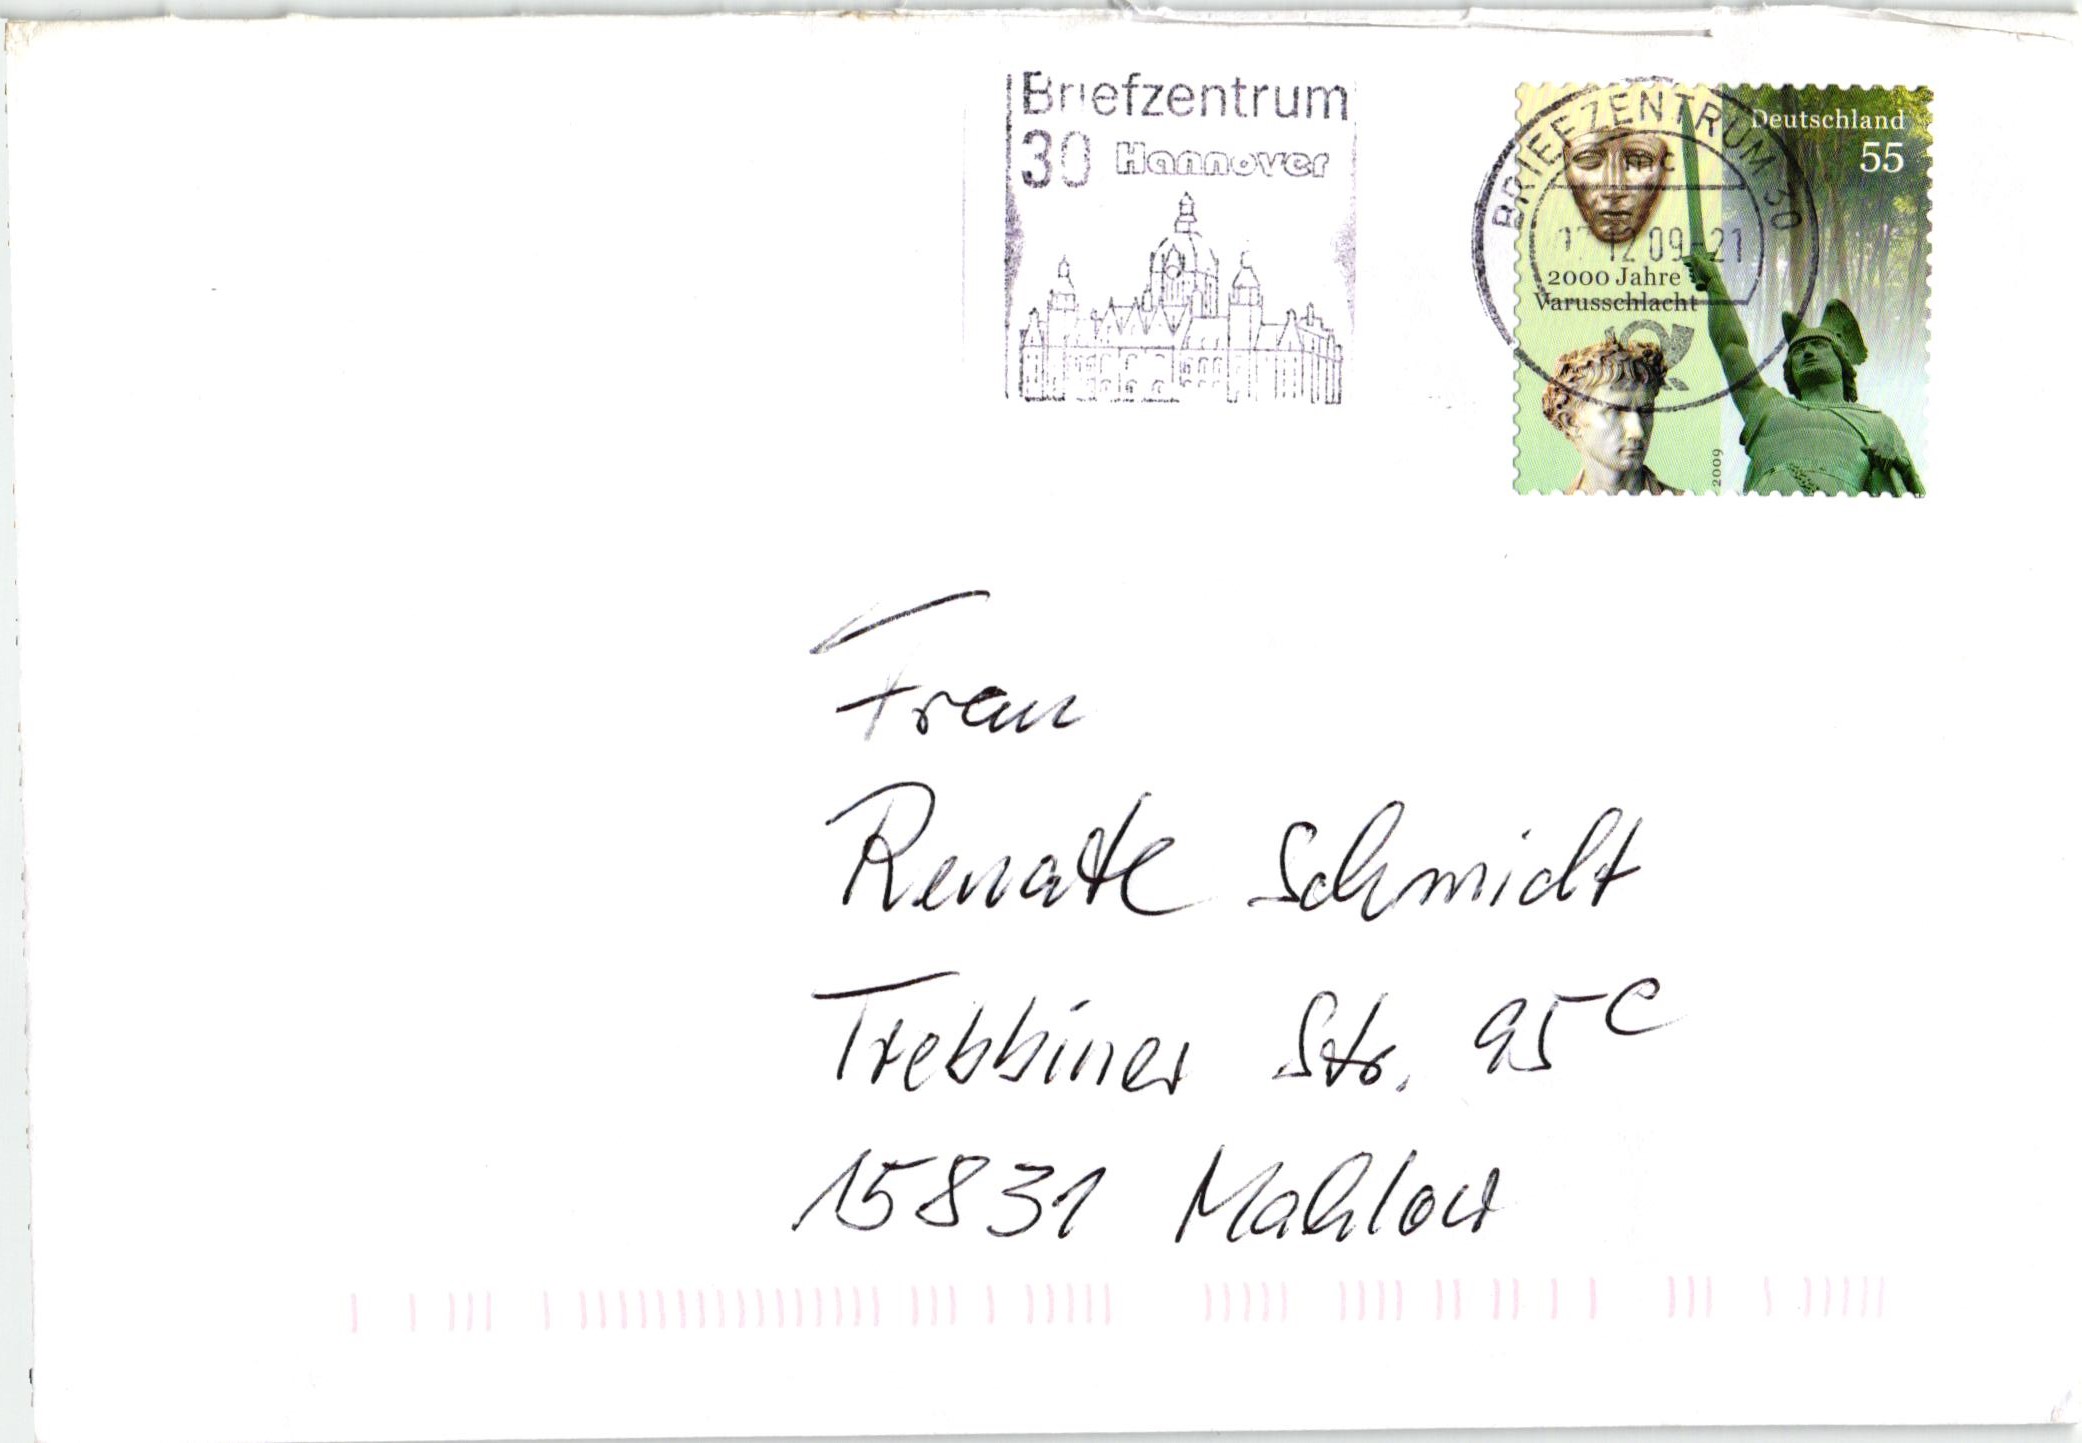 Briefzentrum
30 Hannover
BRIEFZENTRUM 30
mc
12 09-21
Deutschland
55
2000 Jahre
Varusschlacht
2009
Frau
Renate Schmidt
Trebbiner Str. 95c
15831 Mahlow